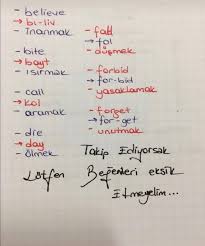 - believe
→ bi-liv
inanmak
- bite
→ bayt
ısırmak
- call
→ kol
aramak
- die
→ day
ölmek
- fall
→ fol
- düşmek
- forbid
→ for-bid
- yasaklamak
- forget
→ for-get
- unutmak
Takip Ediyorsak
Lütfen Beğenileri eksik
Etmeyelim...